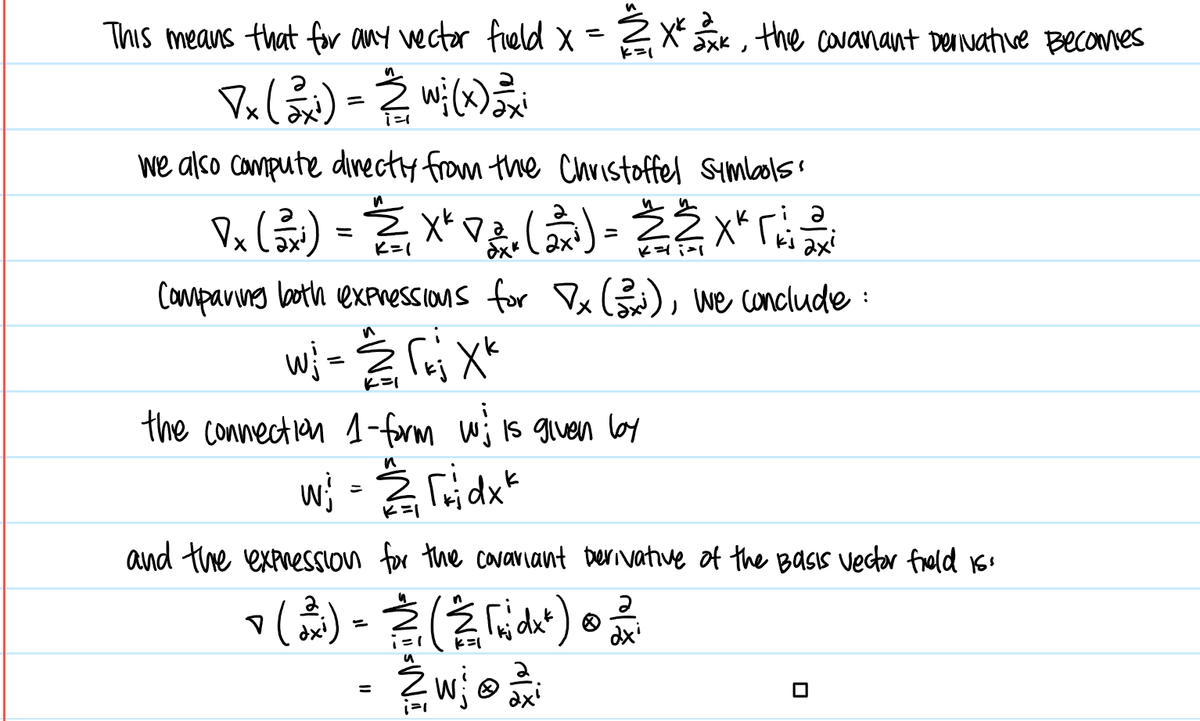 This means that for any vector field X = \sum_{k=1}^{n} X^k \frac{\partial}{\partial x^k}, the covariant derivative becomes
\nabla_X(\frac{\partial}{\partial x^j}) = \sum_{i=1}^{n} w_j^i(x) \frac{\partial}{\partial x^i}
we also compute directly from the Christoffel symbols:
\nabla_X(\frac{\partial}{\partial x^j}) = \sum_{k=1}^{n} X^k \nabla_{\frac{\partial}{\partial x^k}}(\frac{\partial}{\partial x^j}) = \sum_{k=1}^{n} \sum_{i=1}^{n} X^k \Gamma_{kj}^i \frac{\partial}{\partial x^i}
Comparing both expressions for \nabla_X(\frac{\partial}{\partial x^j}), we conclude:
w_j^i = \sum_{k=1}^{n} \Gamma_{kj}^i X^k
the connection 1-form w_j^i is given by
w_j^i = \sum_{k=1}^{n} \Gamma_{kj}^i dx^k
and the expression for the covariant derivative of the basis vector field is:
\nabla(\frac{\partial}{\partial x^j}) = \sum_{i=1}^{n} (\sum_{k=1}^{n} \Gamma_{kj}^i dx^k) \otimes \frac{\partial}{\partial x^i}
= \sum_{i=1}^{n} w_j^i \otimes \frac{\partial}{\partial x^i} □